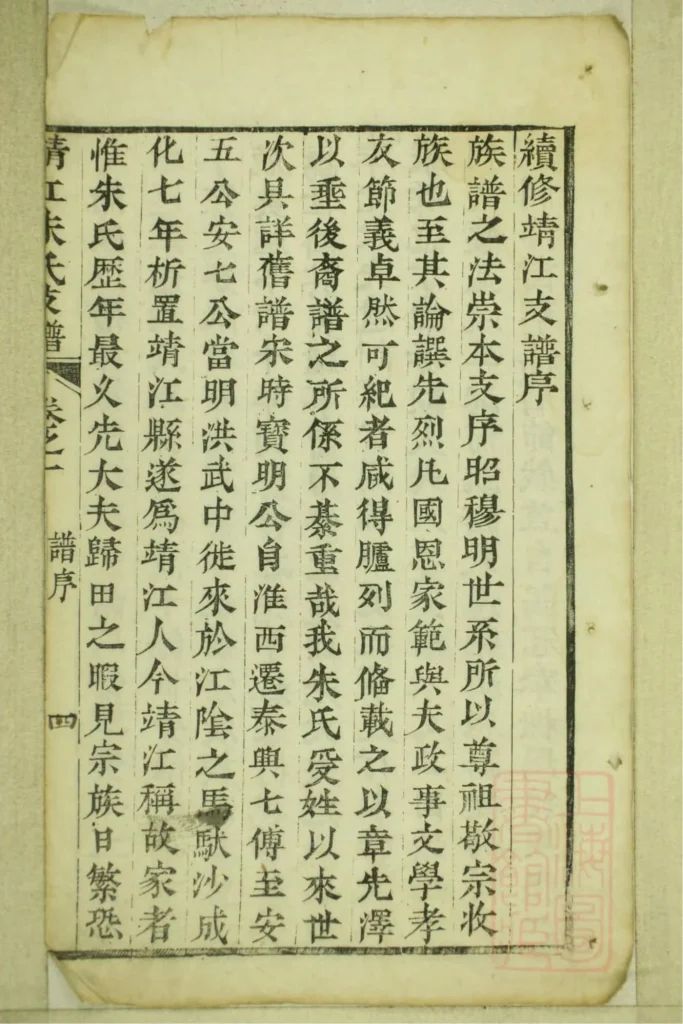 續修靖江支譜序
族譜之法崇本支序昭穆明世系所以尊祖敬宗收
族也至其論譔先烈凡國恩家範與夫政事文學孝
友節義卓然可紀者咸得臚列而俻載之以章先澤
以垂後裔譜之所係不綦重哉我朱氏受姓以來世
次具詳舊譜宋時寶明公自淮西遷泰興七傳至安
五公安七公當明洪武中徙來於江陰之馬馱沙成
化七年析置靖江縣遂爲靖江人今靖江稱故家者
惟朱氏歷年最久先大夫歸田之暇見宗族日繁恐
靖江朱氏支譜 卷之一 譜序 四